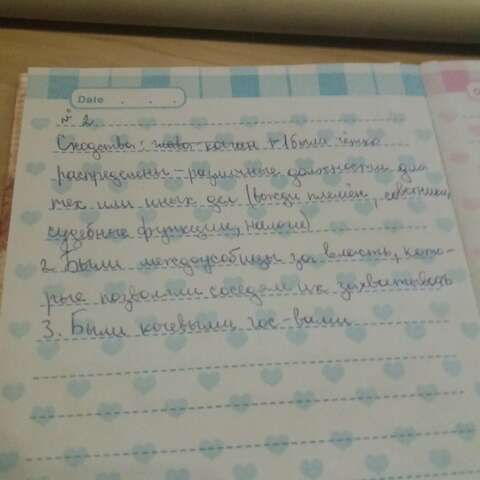 Date . . .
№ 2.
Сходства: глава-каган + 1 были чётко
распределены - различные должности для
тех или иных дел (вожди племён, советники,
судебные функции, налоги)
2. Были междоусобицы за власть, кото-
рые позволяли соседям их захватывать
3. Были кочевыми гос-вами